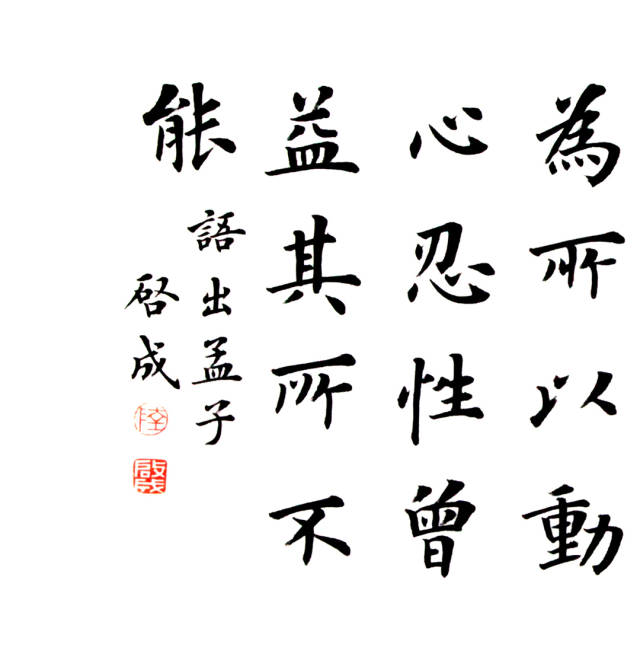 為所以動
心忍性曾
益其所不
能
語出孟子
啓成